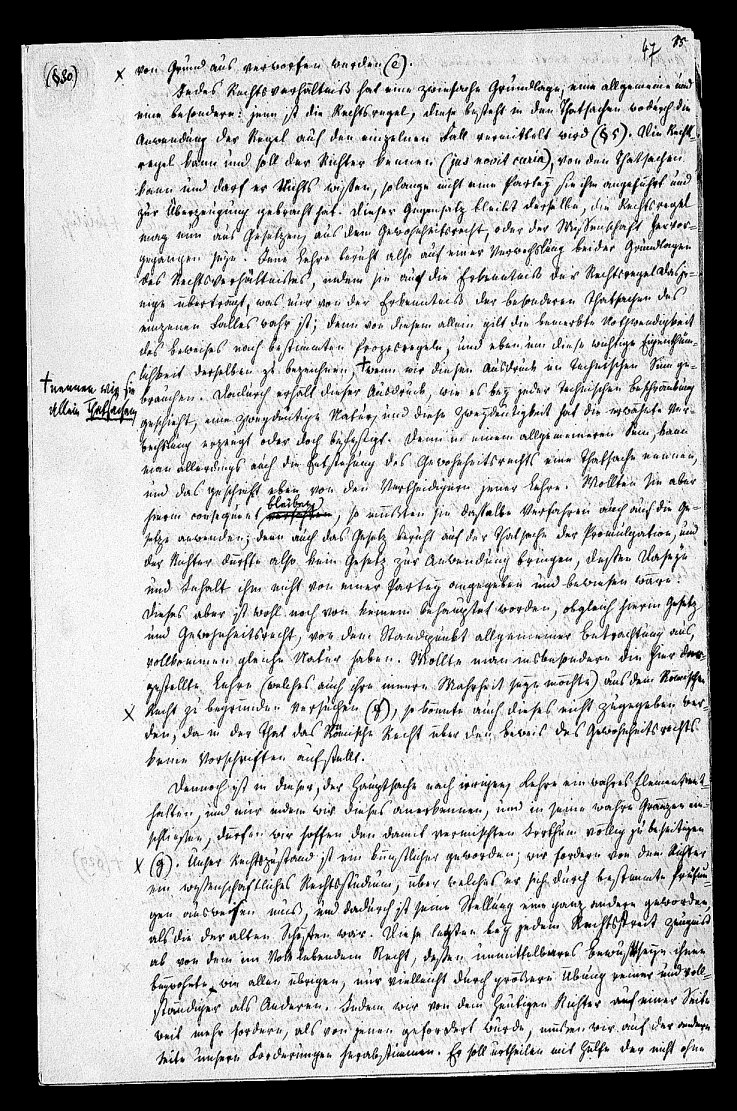 47 85.
(§30)
x von Grund aus verworfen werden (e).
Jedes Rechtsverhältniß hat eine zwiefache Grundlage, eine allgemeine und
eine besondere: jene ist die Rechtsregel, diese besteht in den Thatsachen wodurch die
Anwendung der Regel auf den einzelnen Fall vermittelt wird (§5). Die Rechts-
regel kann und soll der Richter kennen (jus novit curia), von den Thatsachen
kann und darf er Nichts wissen, solange nicht eine Partey sie ihm angeführt und
zur Überzeugung gebracht hat. Dieser Gegensatz bleibt derselbe, die Rechtsregel
mag nun aus Gesetzen, aus dem Gewohnheitsrecht, oder der Wissenschaft hervor-
gegangen seyn. Jene Lehre beruht also auf einer Verwechslung beider Grundlagen
des Rechtsverhältnisses, indem sie auf die Erkenntniß der Rechtsregel dasje-
nige überträgt, was nur von der Erkenntniß der besonderen Thatsachen des
einzenen Falles wahr ist; denn von diesem allein gilt die bemerkte Nothwendigkeit
des Beweises nach bestimmten Prozeßregeln, und eben um diese wichtige Eigenthüm-
lichkeit derselben zu bezeichnen, † wenn wir diesen Ausdruck im technischen Sinn ge-
† nennen wir sie
allein Thatsachen,
brauchen. Dadurch erhält dieser Ausdruck, wie es bey jeder technischen Beschränkung
geschieht, eine zweydeutige Natur, und diese Zweydeutigkeit hat die erwähnte Ver-
wechslung erzeugt oder doch befestigt. Denn in einem allgemeineren Sinn, kann
man allerdings auch die Entstehung des Gewohnheitsrechts eine Thatsache nennen,
und das geschieht eben von den Vertheidigern jener Lehre. Wollten sie aber
hierin consequent bleiben, so müßten sie dasselbe Verfahren auch auf die Ge-
setze anwenden; denn auch das Gesetz beruht auf der Thatsache der Promulgation, und
der Richter dürfte also kein Gesetz zur Anwendung bringen, dessen Daseyn
und Inhalt ihm nicht von einer Partey angegeben und bewiesen wäre.
Dieses aber ist wohl noch von keinem behauptet worden, obgleich hierin Gesetz
und Gewohnheitsrecht, von dem Standpunkt allgemeiner Betrachtung aus,
vollkommen gleiche Natur haben. Wollte man insbesondere die hier dar-
gestellte Lehre (welches auch ihre innere Wahrheit seyn möchte) aus dem Römischen
x Recht zu begründen versuchen (f), so könnte auch dieses nicht zugegeben wer-
den, da in der That das Römische Recht über den Beweis des Gewohnheitsrechts
keine Vorschriften aufstellt.
Dennoch ist in dieser, der Hauptsache nach irrigen, Lehre ein wahres Element ent-
halten, und nur indem wir dieses anerkennen, und in seine wahre Gränzen ein-
schließen, dürfen wir hoffen den damit vermischten Irrthum völlig zu beseitigen
x (g). Unser Rechtszustand ist ein künstlicher geworden; wir fordern von dem Richter
ein wissenschaftliches Rechtsstudium, über welches er sich durch bestimmte Prüfun-
gen ausweisen muß, und dadurch ist seine Stellung eine ganz andere geworden,
als die der alten Schöffen war. Diese legten bey jedem Rechtsstreit Zeugniß
ab von dem im Volk lebendem Recht, dessen unmittelbares Bewußtseyn ihnen
beywohnte, wie allen übrigen, nur vielleicht durch größere Übung reiner und voll-
ständiger als Anderen. Indem wir von dem heutigen Richter auf einer Seite
weit mehr fordern, als von jenen gefordert wurde, müssen wir auf der andern
Seite unsern Forderungen herabstimmen. Er soll urtheilen mit Hülfe der nicht ohne